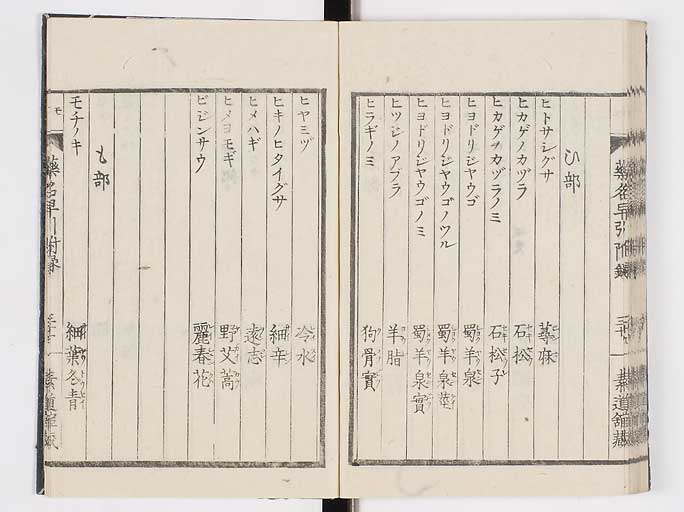 ひ部
ヒトサシグサ 蕁麻
ヒカゲノカヅラ 石松
ヒカゲノカヅラノミ 石松子
ヒヨドリジヤウゴ 蜀羊泉
ヒヨドリジヤウゴノツル 蜀羊泉莖
ヒヨドリジヤウゴノミ 蜀羊泉實
ヒツジノアブラ 羊脂
ヒラギノミ 狗骨實
ヒヤミヅ 冷水
ヒキノヒタイグサ 細辛
ヒメハギ 遠志
ヒメヨモギ 野艾蒿
ビジンサウ 麗春花
も部
モチノキ 細葉冬青
藥名早引附録